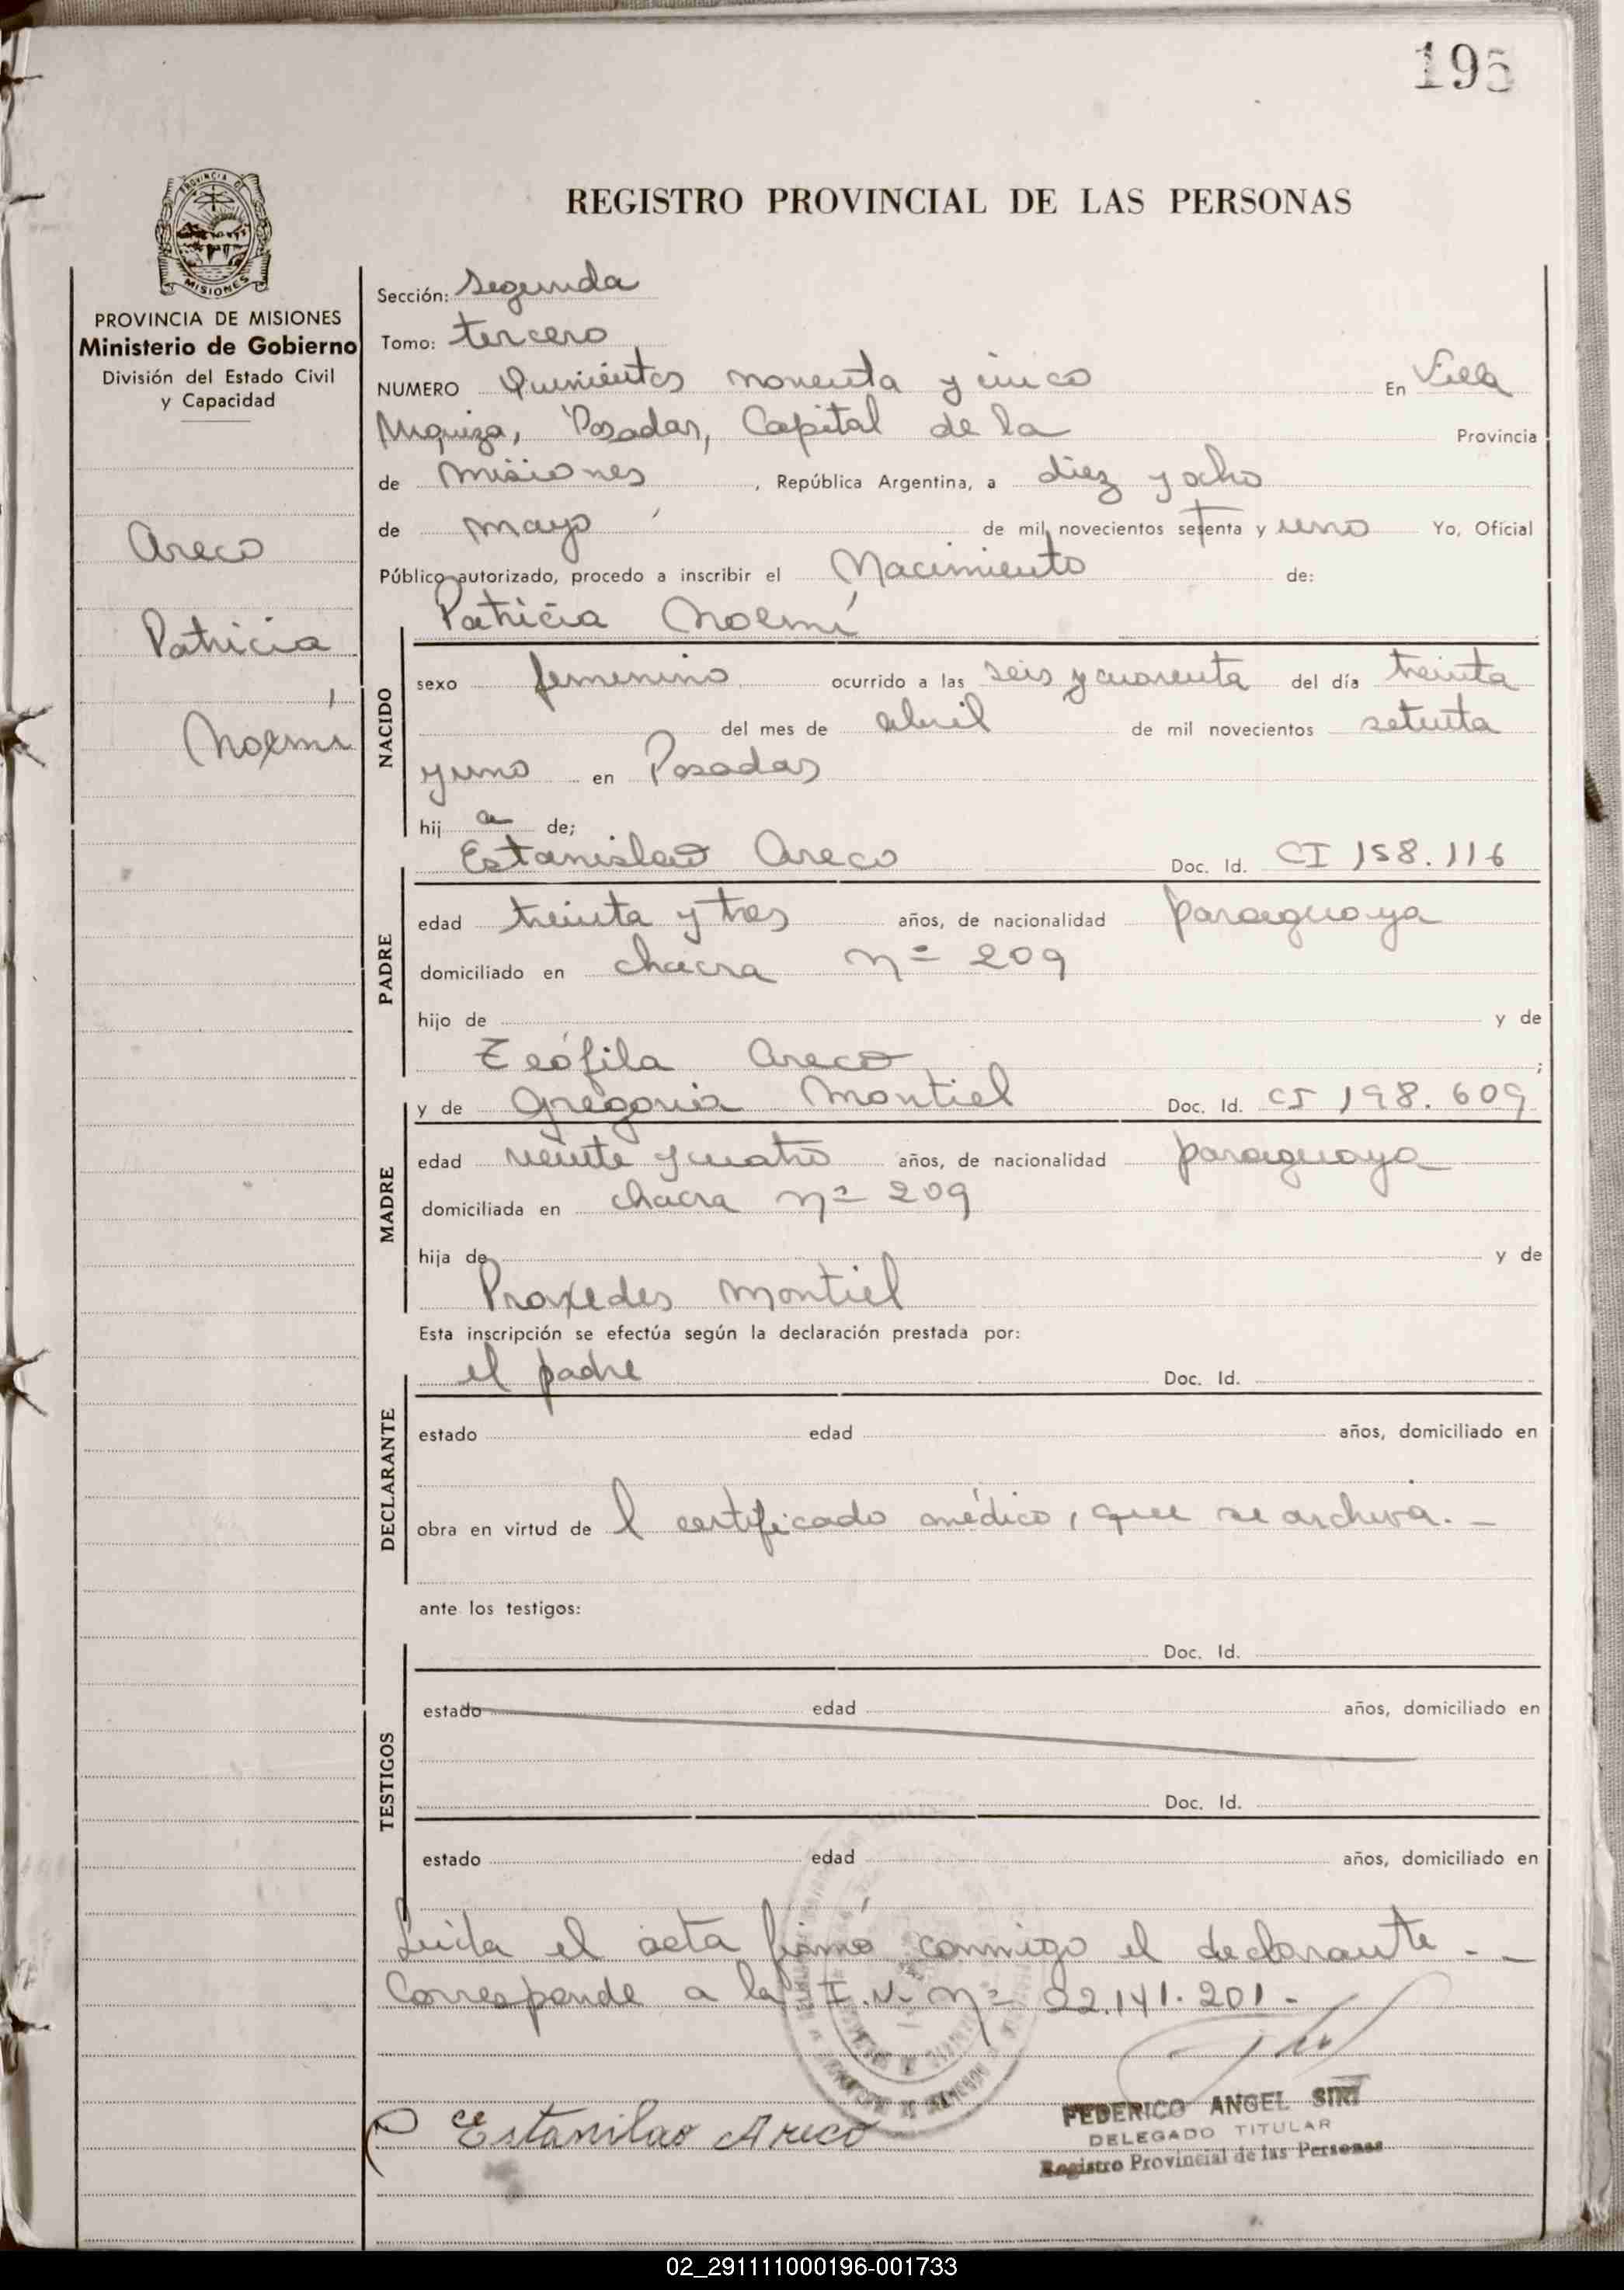 195
PROVINCIA DE
MISIONES
REGISTRO PROVINCIAL DE LAS PERSONAS
PROVINCIA DE MISIONES
Ministerio de Gobierno
División del Estado Civil
y Capacidad
Areco
Patricia
Noemí
Sección: Segunda
Tomo: tercero
NUMERO Quinientos noventa y cinco En Villa
Urquiza, Posadas, Capital de la Provincia
de Misiones, República Argentina, a diez y ocho
de mayo de mil novecientos setenta y uno Yo, Oficial
Público autorizado, procedo a inscribir el Nacimiento de:
Patricia Noemí
NACIDO
sexo femenino ocurrido a las seis y cuarenta del día treinta
del mes de abril de mil novecientos setenta
y uno en Posadas
hija de;
Estanislao Areco Doc. Id. CI 158.116
PADRE
edad treinta y tres años, de nacionalidad paraguaya
domiciliado en chacra nº 209
hijo de y de
Teófila Areco ;
y de Gregoria Montiel Doc. Id. CI 198.609
MADRE
edad veinte y cuatro años, de nacionalidad paraguaya
domiciliada en chacra nº 209
hija de y de
Praxedes Montiel
Esta inscripción se efectúa según la declaración prestada por:
el padre Doc. Id.
DECLARANTE
estado edad años, domiciliado en
obra en virtud de l certificado médico, que se archiva. -
ante los testigos:
Doc. Id.
TESTIGOS
estado edad años, domiciliado en
Doc. Id.
estado edad años, domiciliado en
Leída el acta firmó conmigo el declarante - -
Corresponde a la I.N. nº 22.141.201 -
Estanilao Areco
FEDERICO ANGEL SIRI
DELEGADO TITULAR
Registro Provincial de las Personas
02_291111000196-001733